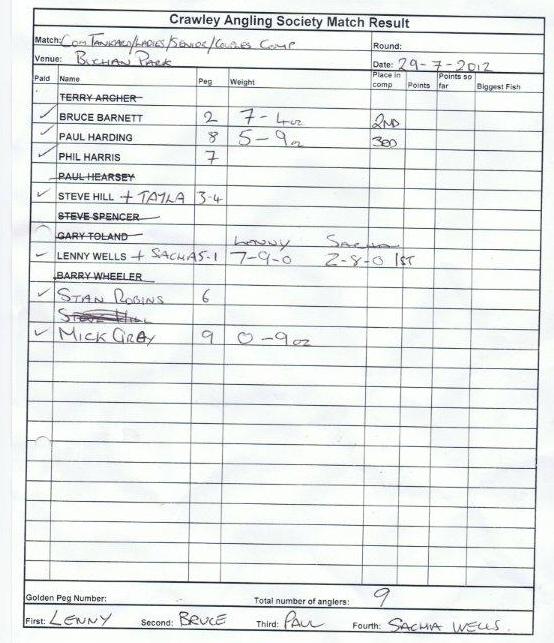 Crawley Angling Society Match Result
Match: Com Tankard/Ladies/Senior/Couples Comp Round:
Venue: Buchan Park Date: 29-7-2012
Paid Name Peg Weight Place in comp Points Points so far Biggest Fish
TERRY ARCHER
BRUCE BARNETT 2 7-4oz 2ND
PAUL HARDING 8 5-9oz 3RD
PHIL HARRIS 7
PAUL HEARSEY
STEVE HILL + TAYLA 3-4
STEVE SPENCER
GARY TOLAND LENNY SACHA
LENNY WELLS + SACHA 5-1 7-9-0 2-8-0 1ST
BARRY WHEELER
STAN ROBINS 6
STEVE HILL
MICK GRAY 9 0-9oz
Golden Peg Number: Total number of anglers: 9
First: LENNY Second: BRUCE Third: PAUL Fourth: SACHA WELLS.